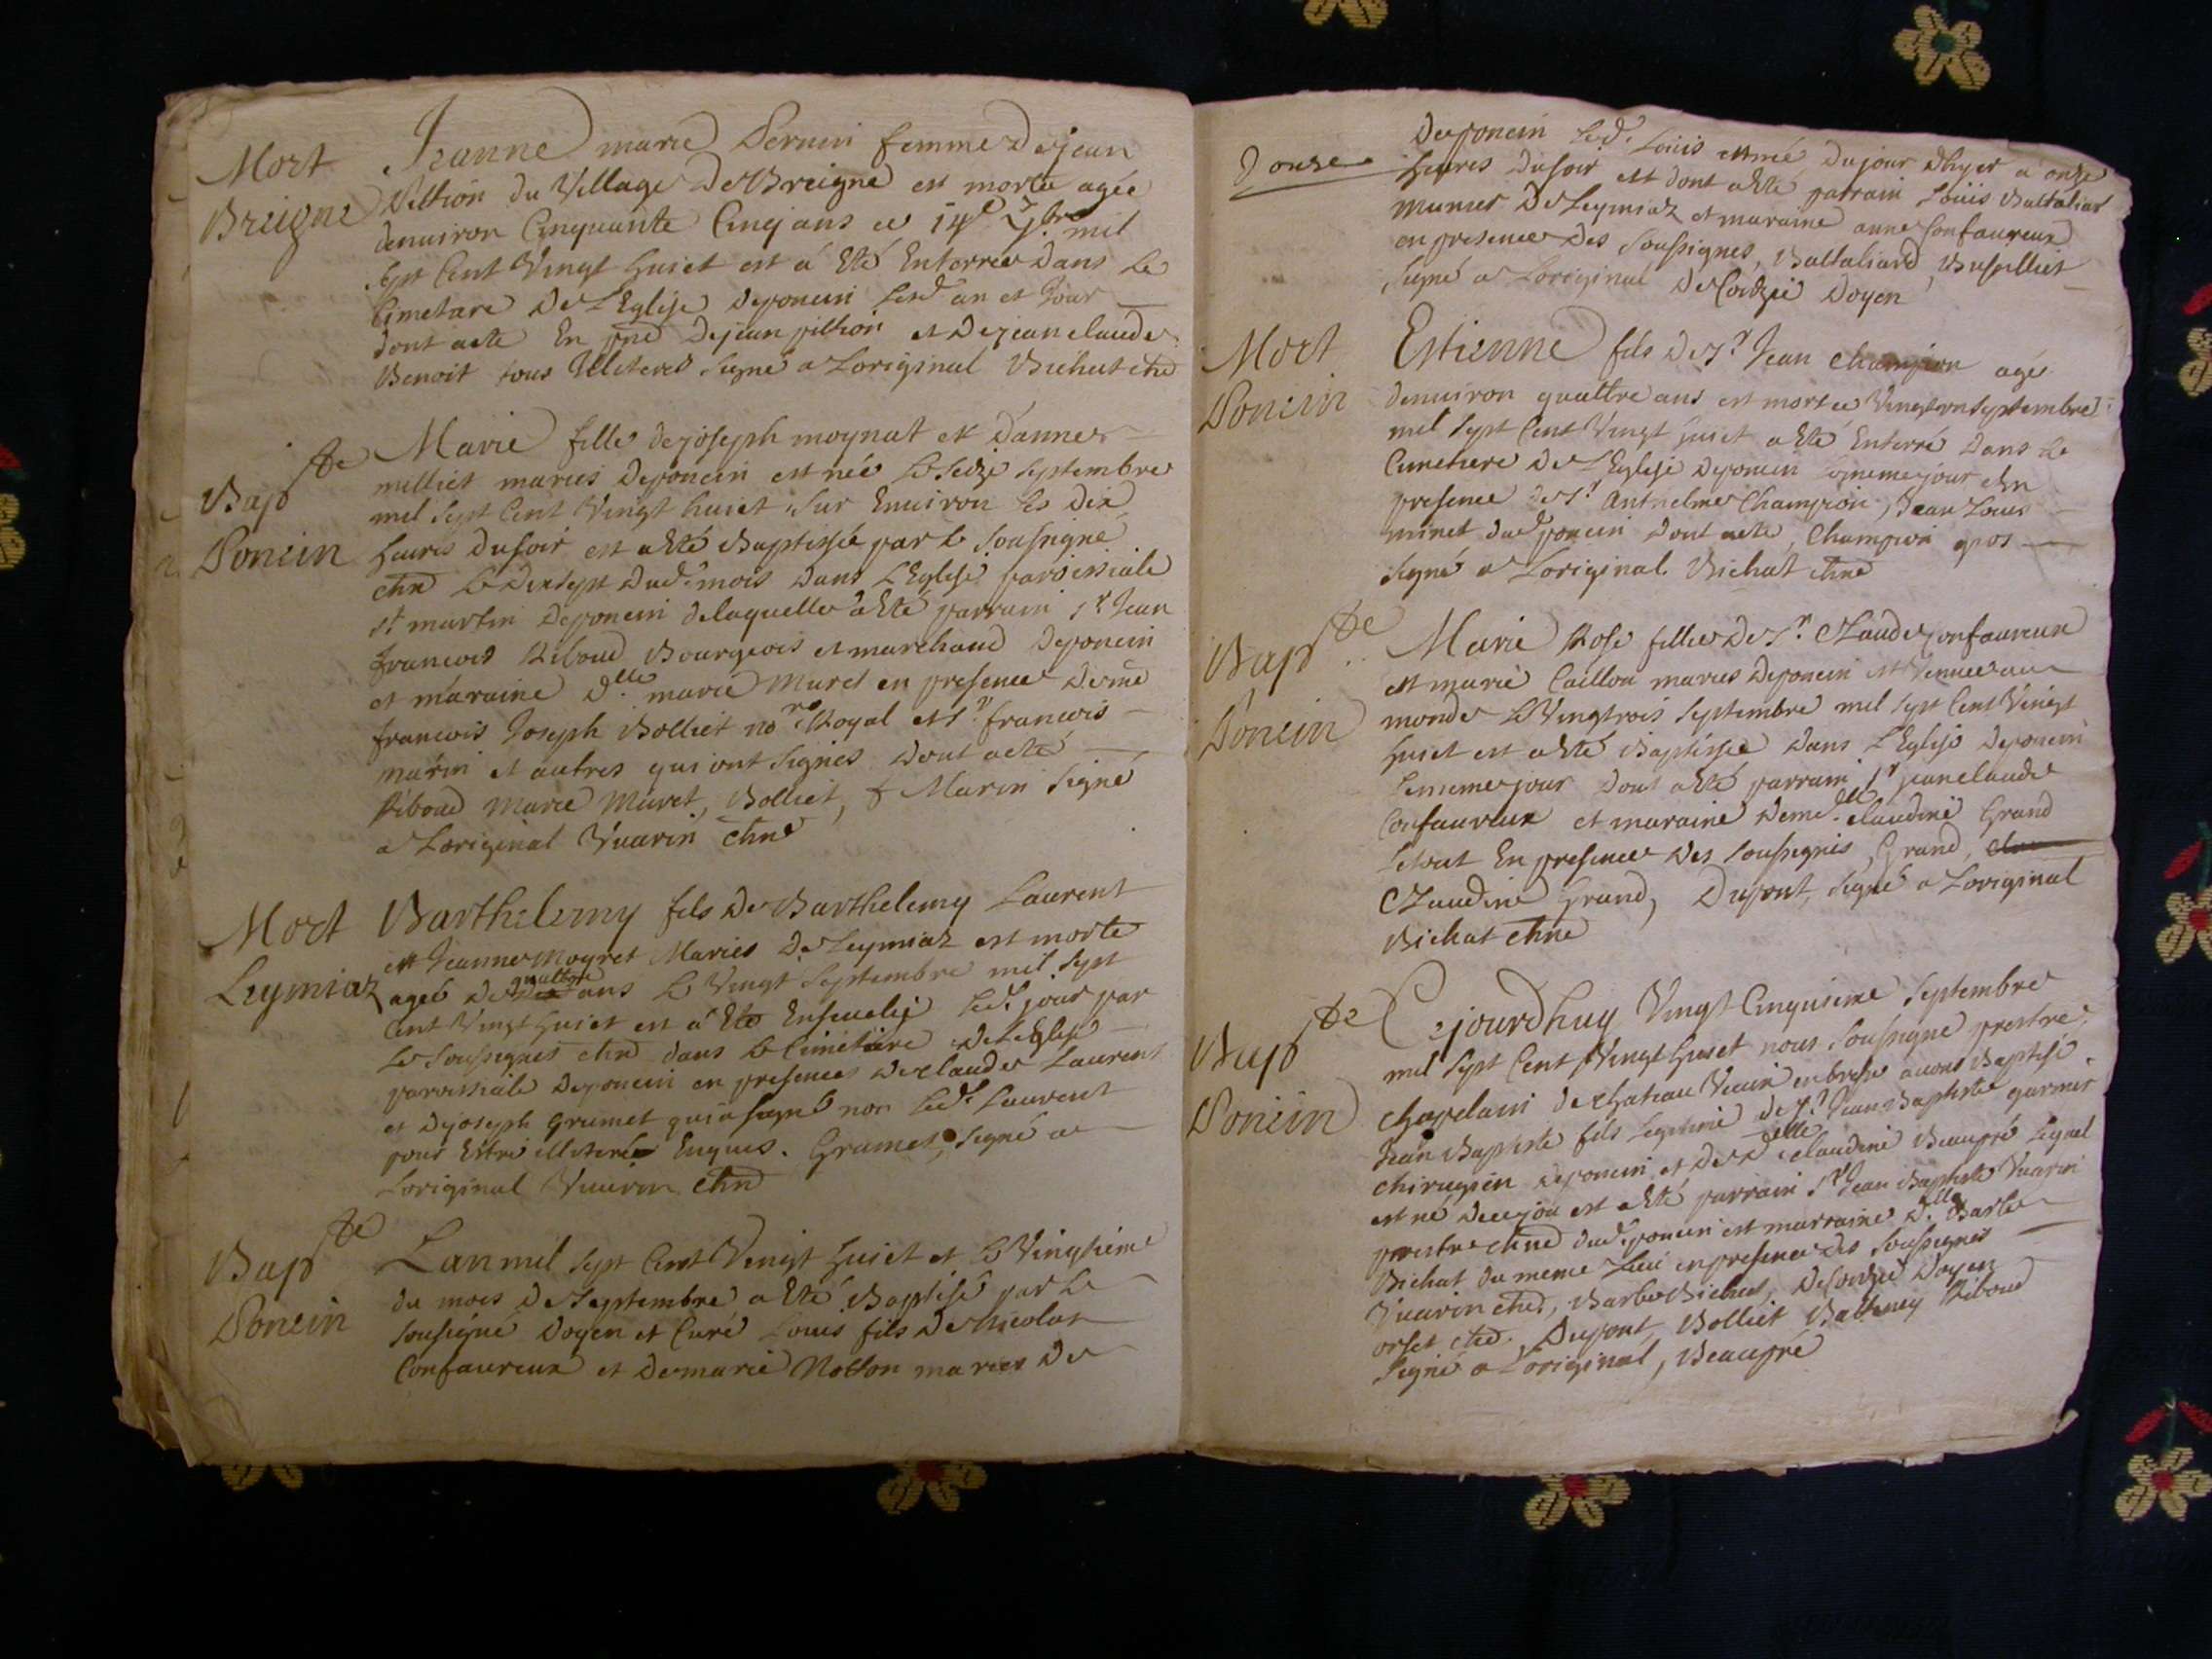 Mort
Breigne
Jeanne marie Pernin femme de jean
Pillion du Village de Breigne est morte agée
denuiron Cinquante Cinq ans ce 14e 7.bre mil
sept Cent Vingt huict est a Eté Enterrée Dans Le
Cimetare De L'Eglise deponcin lesd an et jour
dont acte En pnce dejean pillion et dejean claude
Benoit tous Illiteres signé a Loriginal Bichat chne
Bap te
Poncin
Marie fille dejoseph moynat et d'anne
milliet maries deponcin est née Le seize septembre
mil sept Cent Vingt huict sur Enuiron les dix
heures dusoir est a Eté Baptissée par le soussigné
chne le dixsept dud. mois dans L'Eglise paroissiale
st martin deponcin delaquelle a Eté parrain sr jean
francois Riboud Bourgeois et marchand deponcin
et maraine d.lle marie Muret en presence de me
francois Joseph Bolliet no.re Royal et sr. francois
marin et autres qui ont signés dont acte
Riboud marie Muret, Bolliet, f Marin signé
a Loriginal Vuarin chne
Mort
Leymiaz
Barthelemy fils de Barthelemy Laurent
et Jeanne Moyret Maries de Leymiaz est morte
quattre
ageé de dix ans le Vingt septembre mil sept
Cent Vingt huict est a Eté Enseuelie led. jour par
Le soussignes chne dans le Cimetaire de L'Eglise
parroissiale deponcin en presences declaude Laurent
et dejoseph Grumet qui a signé non led. Laurent
pour Estre illiteré Enquis. Grumet, signé a
Loriginal Vuarin chne
Bap te
Poncin
Lan mil sept Cent Vingt huict et le Vingtieme
du mois de septembre a Eté Baptisé par le
sousigné Doyen et Curé Louis fils de nicolas
Confaureux et demarie Notton maries de
Donse
deponcin led. Loüis est né dujour dhyer a onze
heures dusoir est dont a Eté parrain Loüis Battaliard
munier de Leymiaz et maraine anne Confaureux
en presence des soussignes, Battaliard, Buspilliet
signé a Loriginal de Cordzié Doyen
Mort
Poncin
Estienne fils de sr. Jean Champion agé
denuiron quattre ans est mort ce Vingt un septembre
mil sept Cent Vingt huict a Eté Enterré dans le
Cimetiere de L'Eglise deponcin lememe jour En
presence de sr. Anthelme Champion, Jean Louis
minet dud poncin dont acte, Champion gros
signé a Loriginal. Bichat chne
Bap te
Poncin
Marie Rose fille de sr. Claude Confaureux
et marie Caillon maries deponcin est Vennue au
monde le Vingtrois septembre mil sept Cent Vingt
huict est a Eté Baptissée dans L'Eglise deponcin
lememe jour dont a Eté parrain sr jean claude
Confaureux et maraine dem.lle claudine Grand
letout En presence des soussignés, Grand,
Claudine Grand, Dupont, signé a Loriginal
Bichat chne
Bap te
Poncin
Cejourdhuy Vingt Cinquieme septembre
mil sept Cent Vingt huict nous soussigné prestre
chapelain de chateau Vieux en bresse auons Baptisé
Jean Baptiste fils legitime de sr. Jean Baptiste garnier
chirugien deponcin et de d.elle claudine Beaupré lequel
est né decejou est a Eté parrain sr Jean Baptiste Vuarin
prestre chne dud. poncin est marraine d.lle Barbe
Bichat du meme Lieu en presence des soussignés
Vuarin chne, Barbe Bichat, de Cordzié Doyen
orset chne. Dupont, Bolliet Battaney Riboud
signé a Loriginal, Beaupré